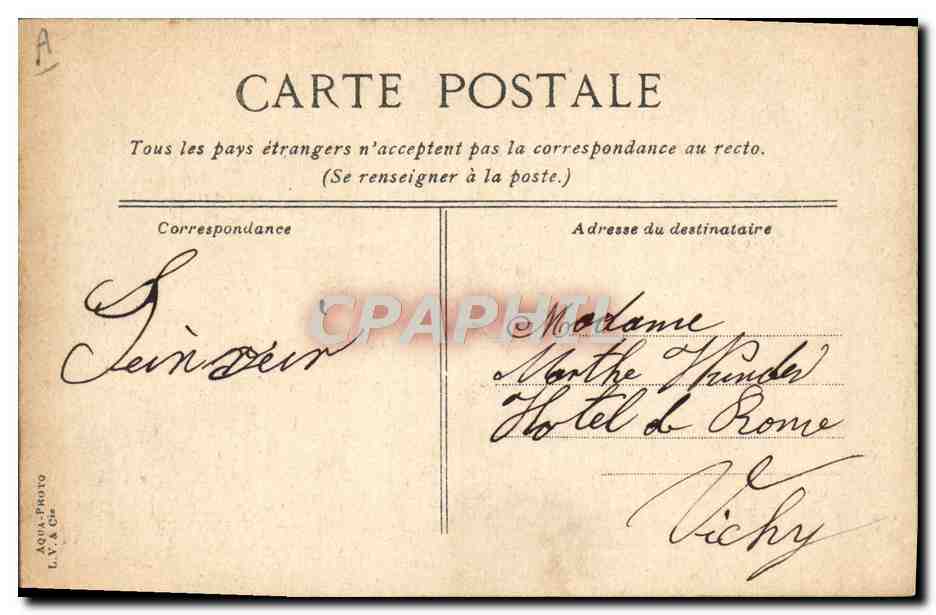 A
CARTE POSTALE
Tous les pays étrangers n'acceptent pas la correspondance au recto.
(Se renseigner à la poste.)
Correspondance
Adresse du destinataire
CPAPHIL
Madame
Marthe
Hotel de Rome
Vichy
AQUA-PHOTO
L.V. & Cie